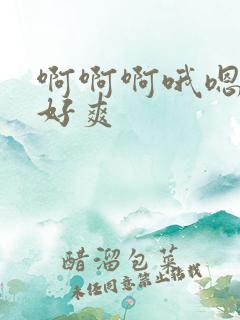 啊啊啊哦嗯
好爽
醋溜包菜
未经同意禁止转载